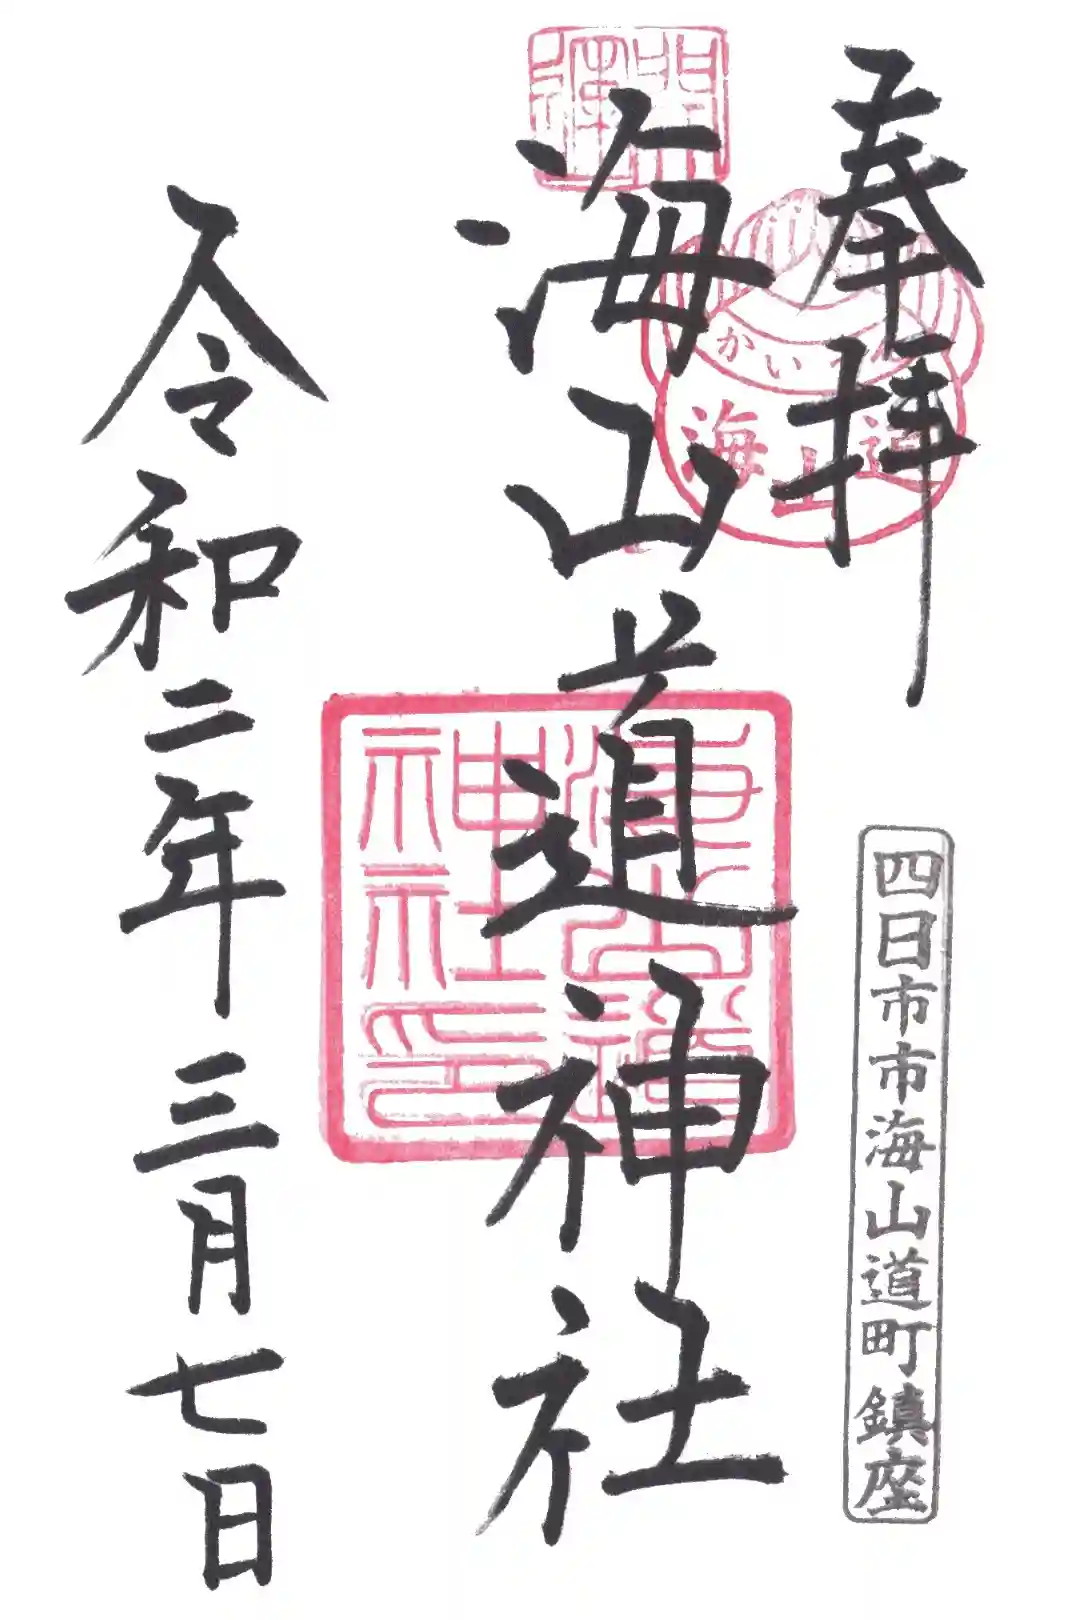 奉拝
四日市市海山道町鎮座
海山道
海山道神社
海山道神社印
令和二年三月七日